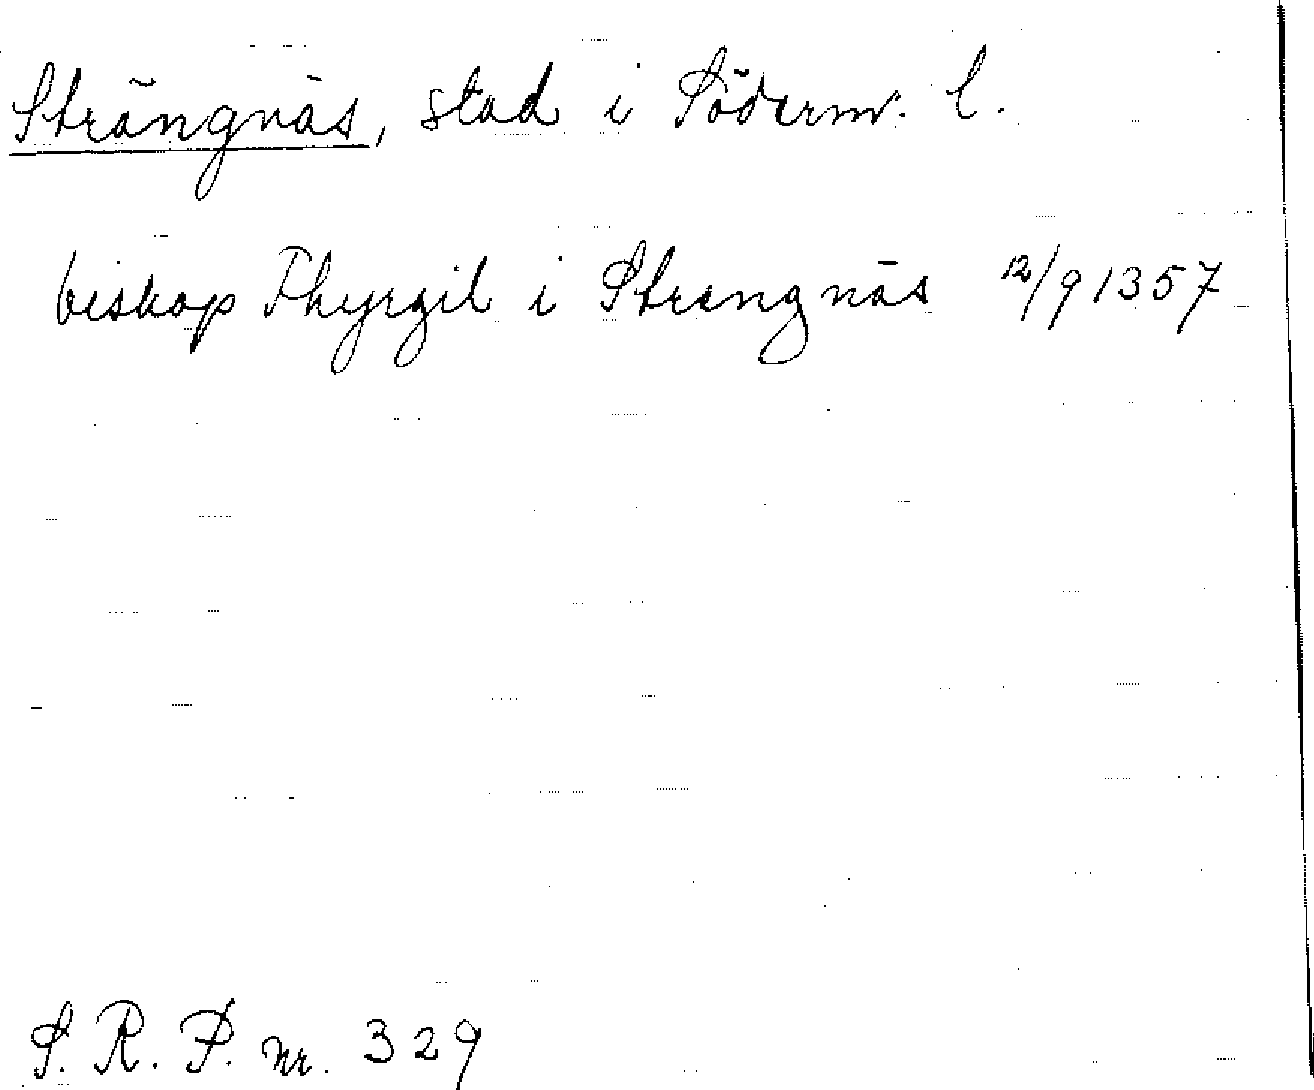 Strängnäs, stad i Söderm. l.
biskop Thyrgil i Strengnäs 12/9 1357
S. R. P. nr. 329